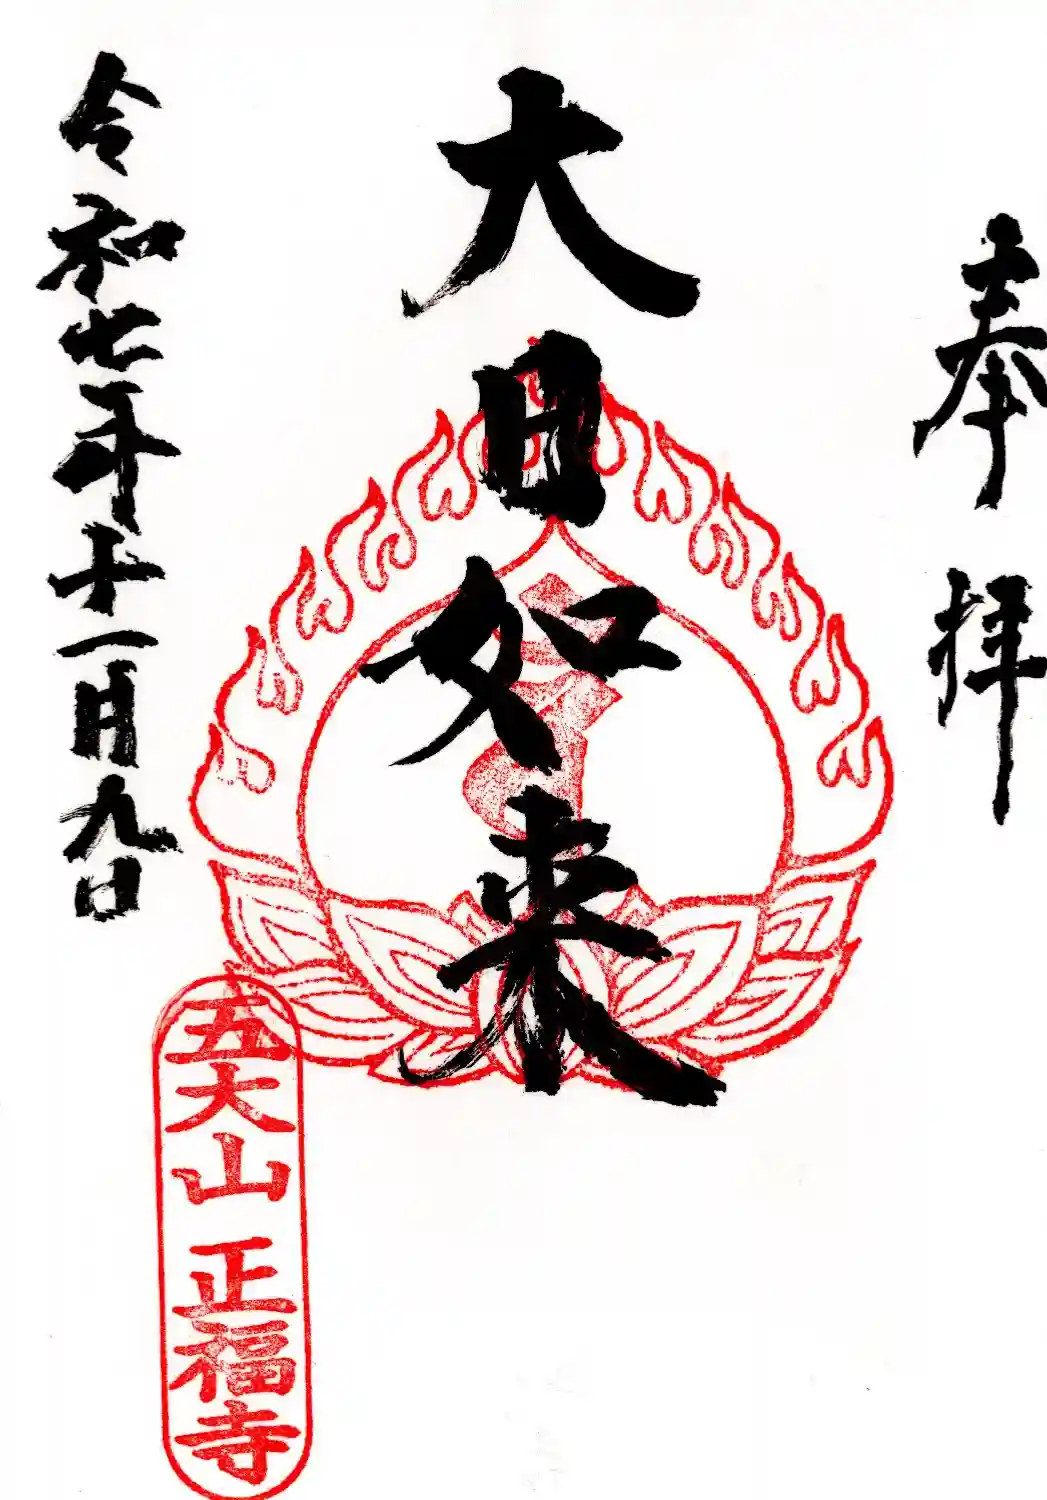 奉拝
大日如来
令和七年十一月九日
五大山 正福寺